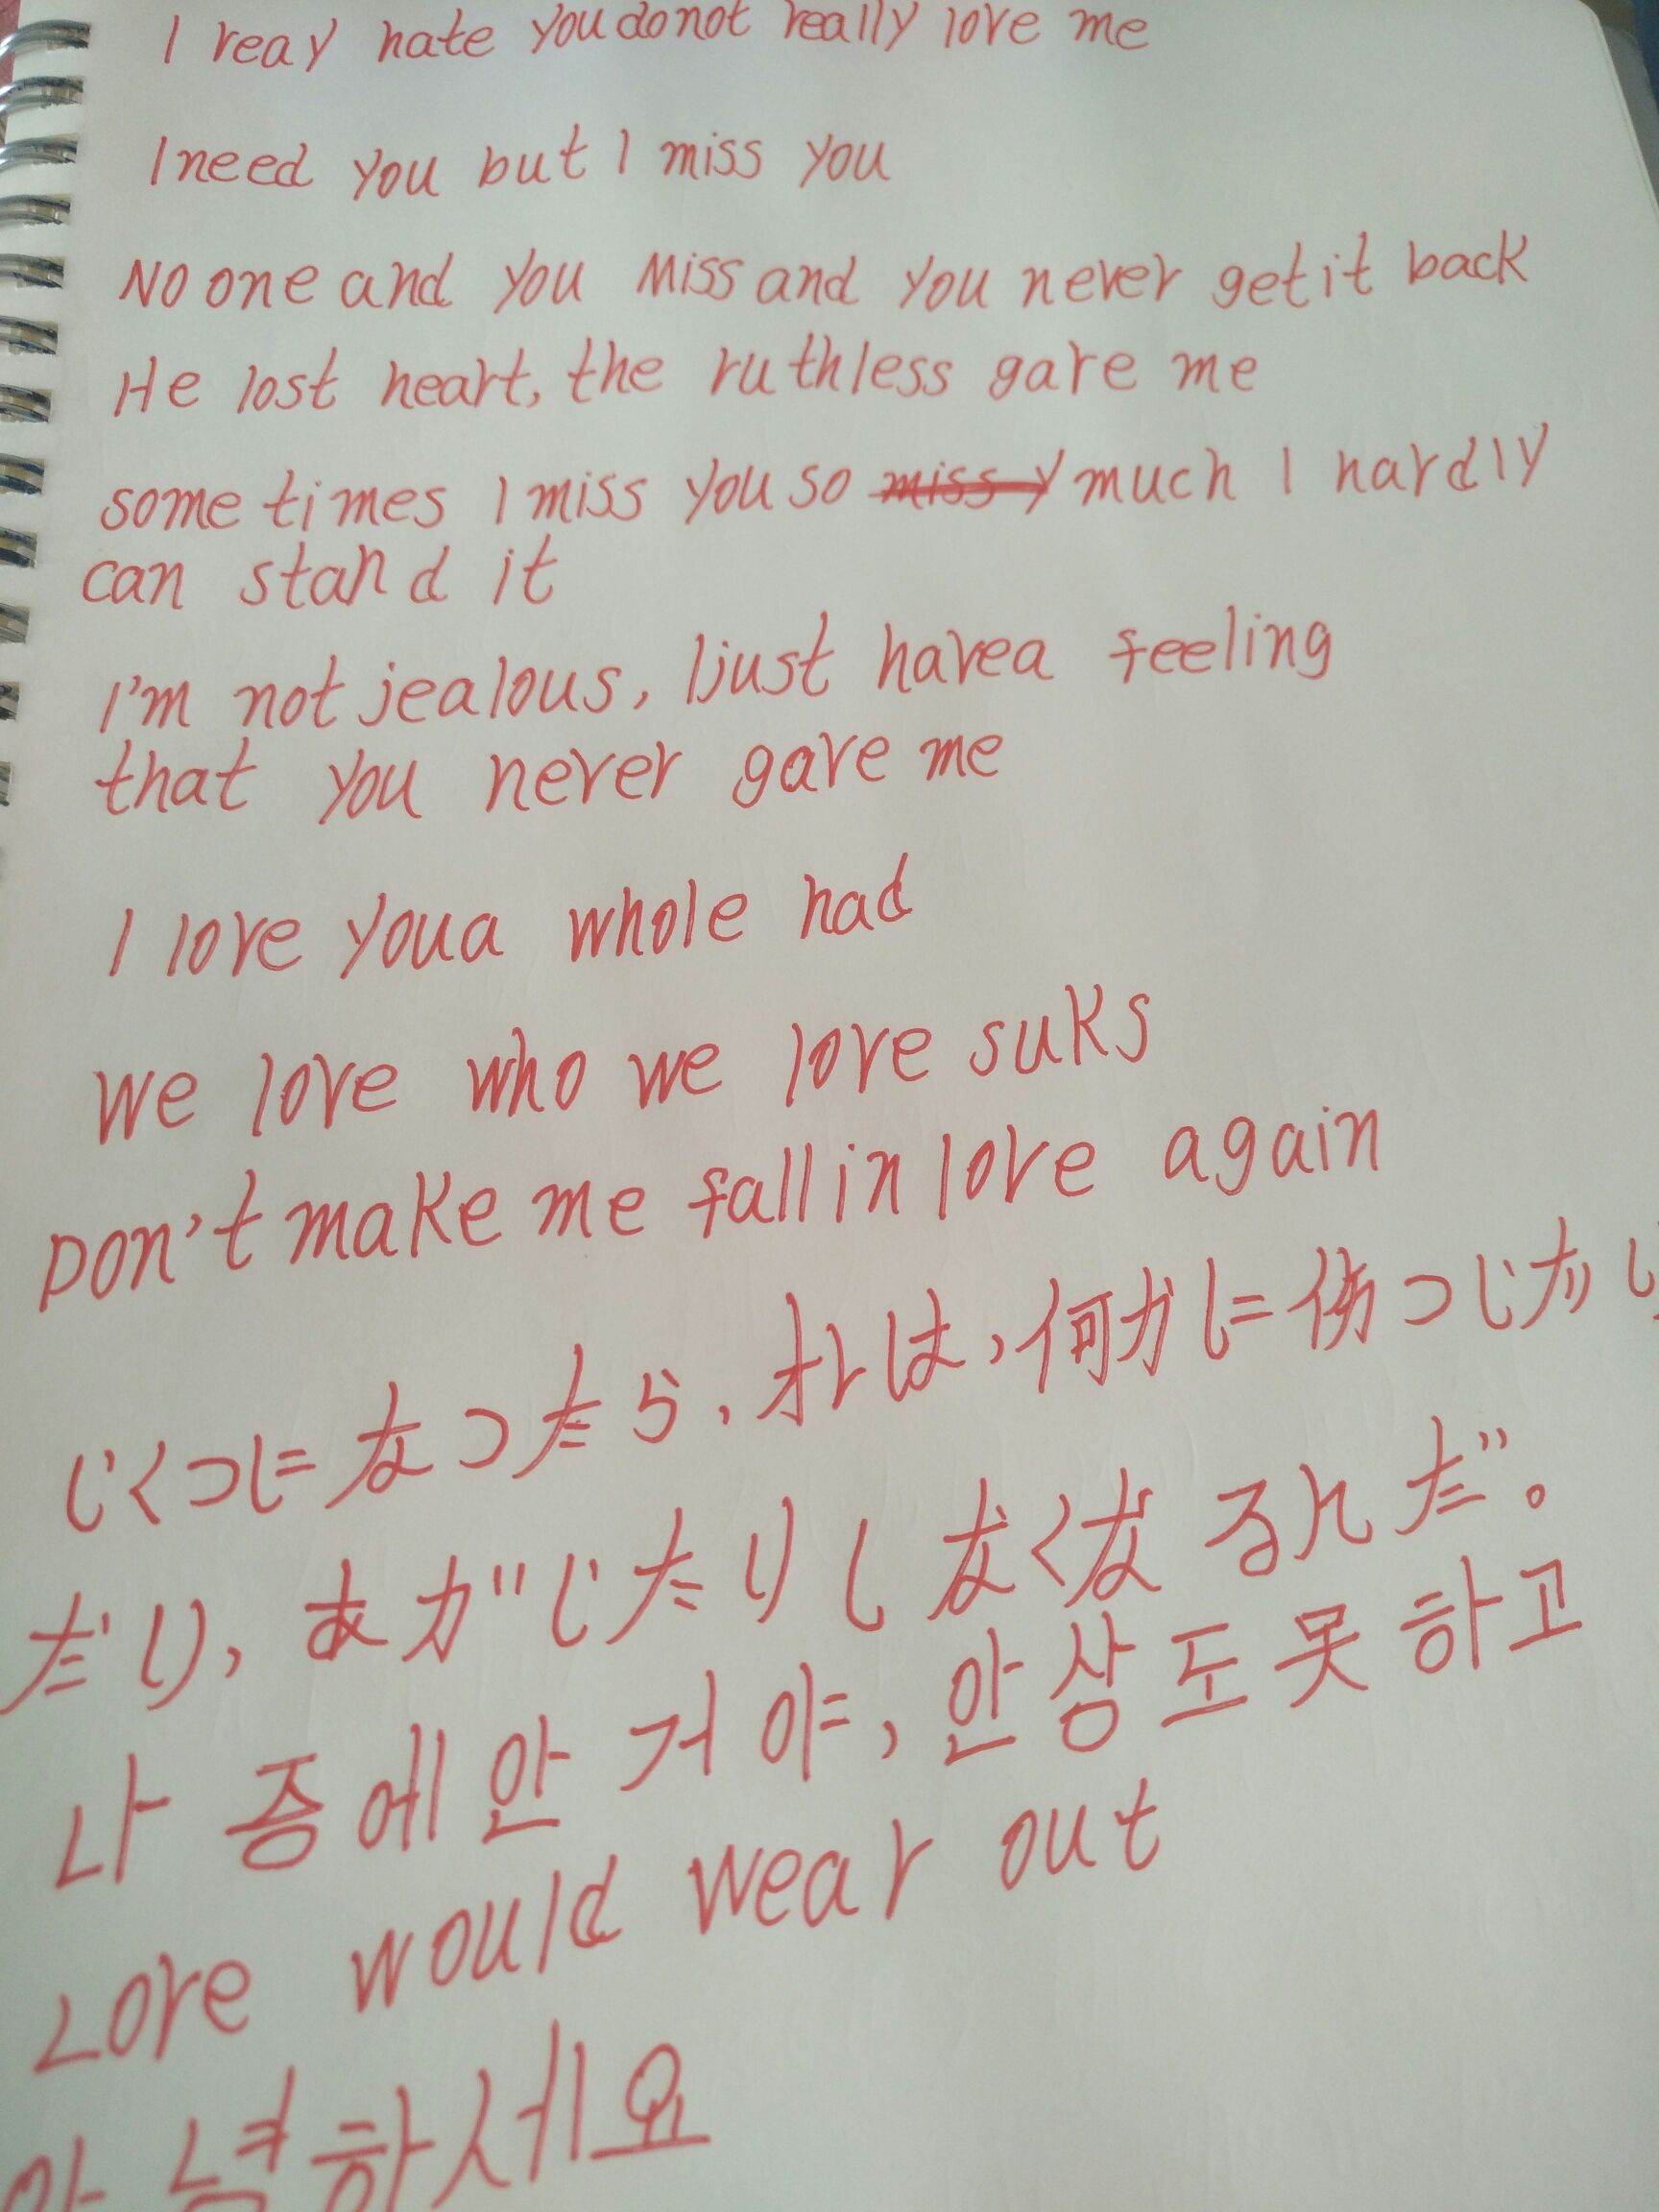 I reay hate you do not really love me
I need you but I miss you
No one and you miss and you never get it back
He lost heart, the ruthless gave me
some times I miss you so miss y much I hardly
can stand it
I'm not jealous, I just have a feeling
that you never gave me
I love you a whole had
We love who we love suks
Don't make me fall in love again
じくつになつたら、オトは、何かに つじたり
だり, あがじたりしなくなるんだ。
나 증에 안 거야, 안상도 못 하고
Love would wear out
안녕하세요